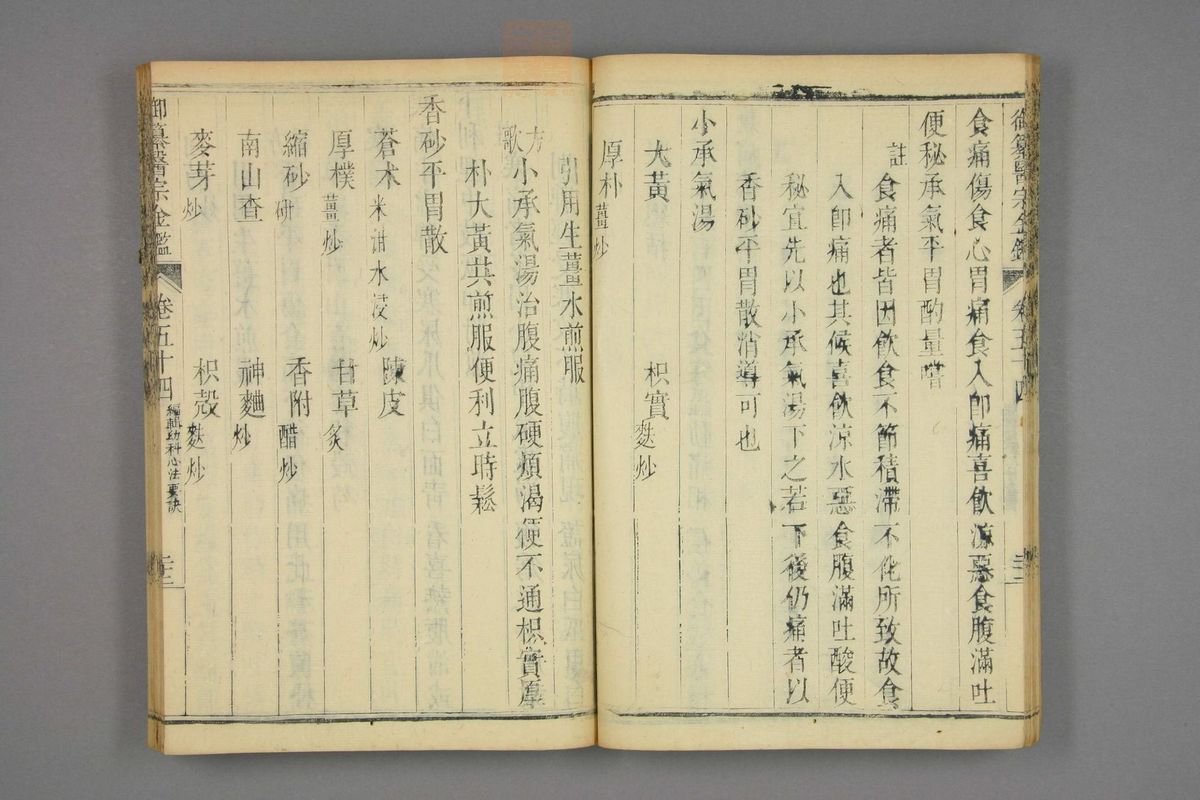 御纂醫宗金鑑 卷五十四
食痛傷食心胃痛食入卽痛喜飲凉惡食腹滿吐
便秘承氣平胃酌量嘗
註 食痛者皆因飲食不節積滯不化所致故食
入卽痛也其候喜飲涼水惡食腹滿吐酸便
秘宜先以小承氣湯下之若下後仍痛者以
香砂平胃散消導可也
小承氣湯
大黃 枳實麩炒
厚朴薑炒
引用生薑水煎服
方歌 小承氣湯治腹痛腹硬煩渴便不通枳實厚
朴大黃共煎服便利立時鬆
香砂平胃散
蒼术米泔水浸炒 陳皮
厚樸薑炒 甘草炙
縮砂研 香附醋炒
南山查 神麯炒
麥芽炒 枳殼麩炒
御纂醫宗金鑑 卷五十四 編輯幼科心法要訣 三三